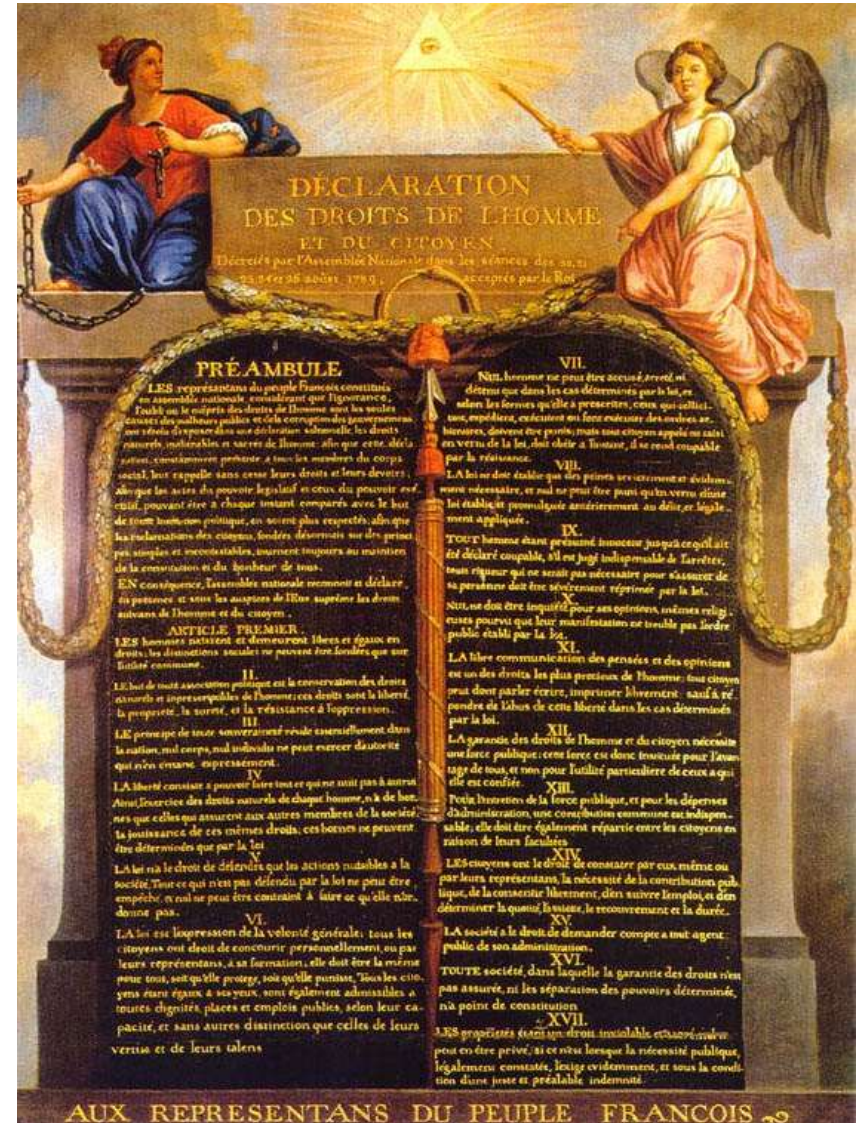 DÉCLARATION
DES DROITS DE L'HOMME
ET DU CITOYEN
Décretés par l'Assemblée Nationale dans les séances des 20, 21
23, 24 et 26 août 1789, acceptés par le Roi
PRÉAMBULE
LES représentans du peuple François constitués
en assemblée nationale, considérant que l'ignorance,
l'oubli ou le mépris des droits de l'homme sont les seules
causes des malheurs publics et de la corruption des gouvernemens
ont résolu d'exposer dans une déclaration solemnelle, les droits
naturels, inaliénables et sacrés de l'homme: afin que cette décla
ration, constamment présente a tous les membres du corps
social, leur rappelle sans cesse leurs droits et leurs devoirs;
afin que les actes du pouvoir législatif et ceux du pouvoir exé
cutif, pouvant être a chaque instant comparés avec le but
de toute institution politique, en soient plus respectés; afin que
les réclamations des citoyens, fondées désormais sur des princi
pes simples et incontestables, tournent toujours au maintien
de la constitution et du bonheur de tous.
EN conséquence, l'assemblée nationale reconnoit et déclare,
en présence et sous les auspices de l'Etre suprême les droits
suivans de l'homme et du citoyen.
ARTICLE PREMIER.
LES hommes naissent et demeurent libres et égaux en
droits; les distinctions sociales ne peuvent être fondées que sur
l'utilité commune.
II.
LE but de toute association politique est la conservation des droits
naturels et imprescriptibles de l'homme; ces droits sont la liberté,
la propriété, la sureté, et la résistance à l'oppression.
III.
LE principe de toute souveraineté réside essentiellement dans
la nation, nul corps, nul individu ne peut exercer d'autorité
qui n'en émane expressément.
IV.
LA liberté consiste a pouvoir faire tout ce qui ne nuit pas à autrui
Ainsi, l'exercice des droits naturels de chaque homme, n'a de bor-
nes que celles qui assurent aux autres membres de la société
la jouissance de ces mêmes droits; ces bornes ne peuvent
être déterminées que par la loi
V.
LA loi n'a le droit de défendre que les actions nuisibles a la
société. Tout ce qui n'est pas défendu par la loi ne peut être
empêché, et nul ne peut être contraint à faire ce qu'elle n'or-
donne pas.
VI.
LA loi est l'expression de la volonté générale; tous les
citoyens ont droit de concourir personnellement, ou par
leurs représentans, à sa formation; elle doit être la même
pour tous, soit qu'elle protege, soit qu'elle punisse, Tous les cito
yens étant égaux à ses yeux, sont également admissibles a
toutes dignités, places et emplois publics, selon leur ca-
pacité, et sans autres distinction que celles de leurs
vertus et de leurs talens
VII.
NUL homme ne peut être accusé, arreté, ni
détenu que dans les cas déterminés par la loi, et
selon les formes qu'elle à prescrites, ceux qui sollici-
tent, expédient, exécutent ou font exécuter des ordres ar-
bitraires, doivent être punis; mais tout citoyen appelé ou saisi
en vertu de la loi, doit obéir a l'instant, il se rend coupable
par la résistance.
VIII.
LA loi ne doit établir que des peines strictement et évidem-
ment nécessaire, et nul ne peut être puni qu'en vertu d'une
loi établie et promulguée antérierement au délit, et légale-
ment appliquée.
IX.
TOUT homme étant présumé innocent jusqu'à ce qu'il ait
été déclaré coupable, s'il est jugé indispensable de l'arrêter,
toute rigueur qui ne serait pas nécessaire pour s'assurer de
sa personne doit être sévèrement réprimée par la loi.
X.
NUL ne doit être inquiété pour ses opinions, mêmes religi-
euses pourvu que leur manifestation ne trouble pas l'ordre
public établi par la loi.
XI.
LA libre communication des pensées et des opinions
est un des droits les plus précieux de l'homme: tout citoyen
peut donc parler écrire, imprimer librement: sauf à ré-
pondre de l'abus de cette liberté dans les cas déterminés
par la loi.
XII.
LA garantie des droits de l'homme et du citoyen nécessite
une force publique; cette force est donc instituée pour l'avan-
tage de tous, et non pour l'utilité particuliere de ceux a qui
elle est confiée.
XIII.
POUR l'entretien de la force publique, et pour les dépenses
d'administration, une contribution commune est indispen-
sable; elle doit être également répartie entre les citoyens en
raison de leurs facultées
XIV.
LES citoyens ont le droit de constater par eux, même ou
par leurs représentans, la nécessité de la contribution pub-
lique, de la consentir librement, d'en suivre l'emploi, et d'en
déterminer la quotité, l'assiette, le recouvrement et la durée.
XV.
LA société a le droit de demander compte a tout agent
public de son administration.
XVI.
TOUTE société, dans laquelle la garantie des droits n'est
pas assurée, ni les séparation des pouvoirs déterminée,
n'a point de constitution
XVII.
LES propriétés étant un droit inviolable et sacré, nul ne
peut en être privé, si ce n'est lorsque la nécessité publique,
légalement constatée, l'exige evidemment, et sous la condi-
tion d'une juste et préalable indemnité.
AUX REPRESENTANS DU PEUPLE FRANCOIS